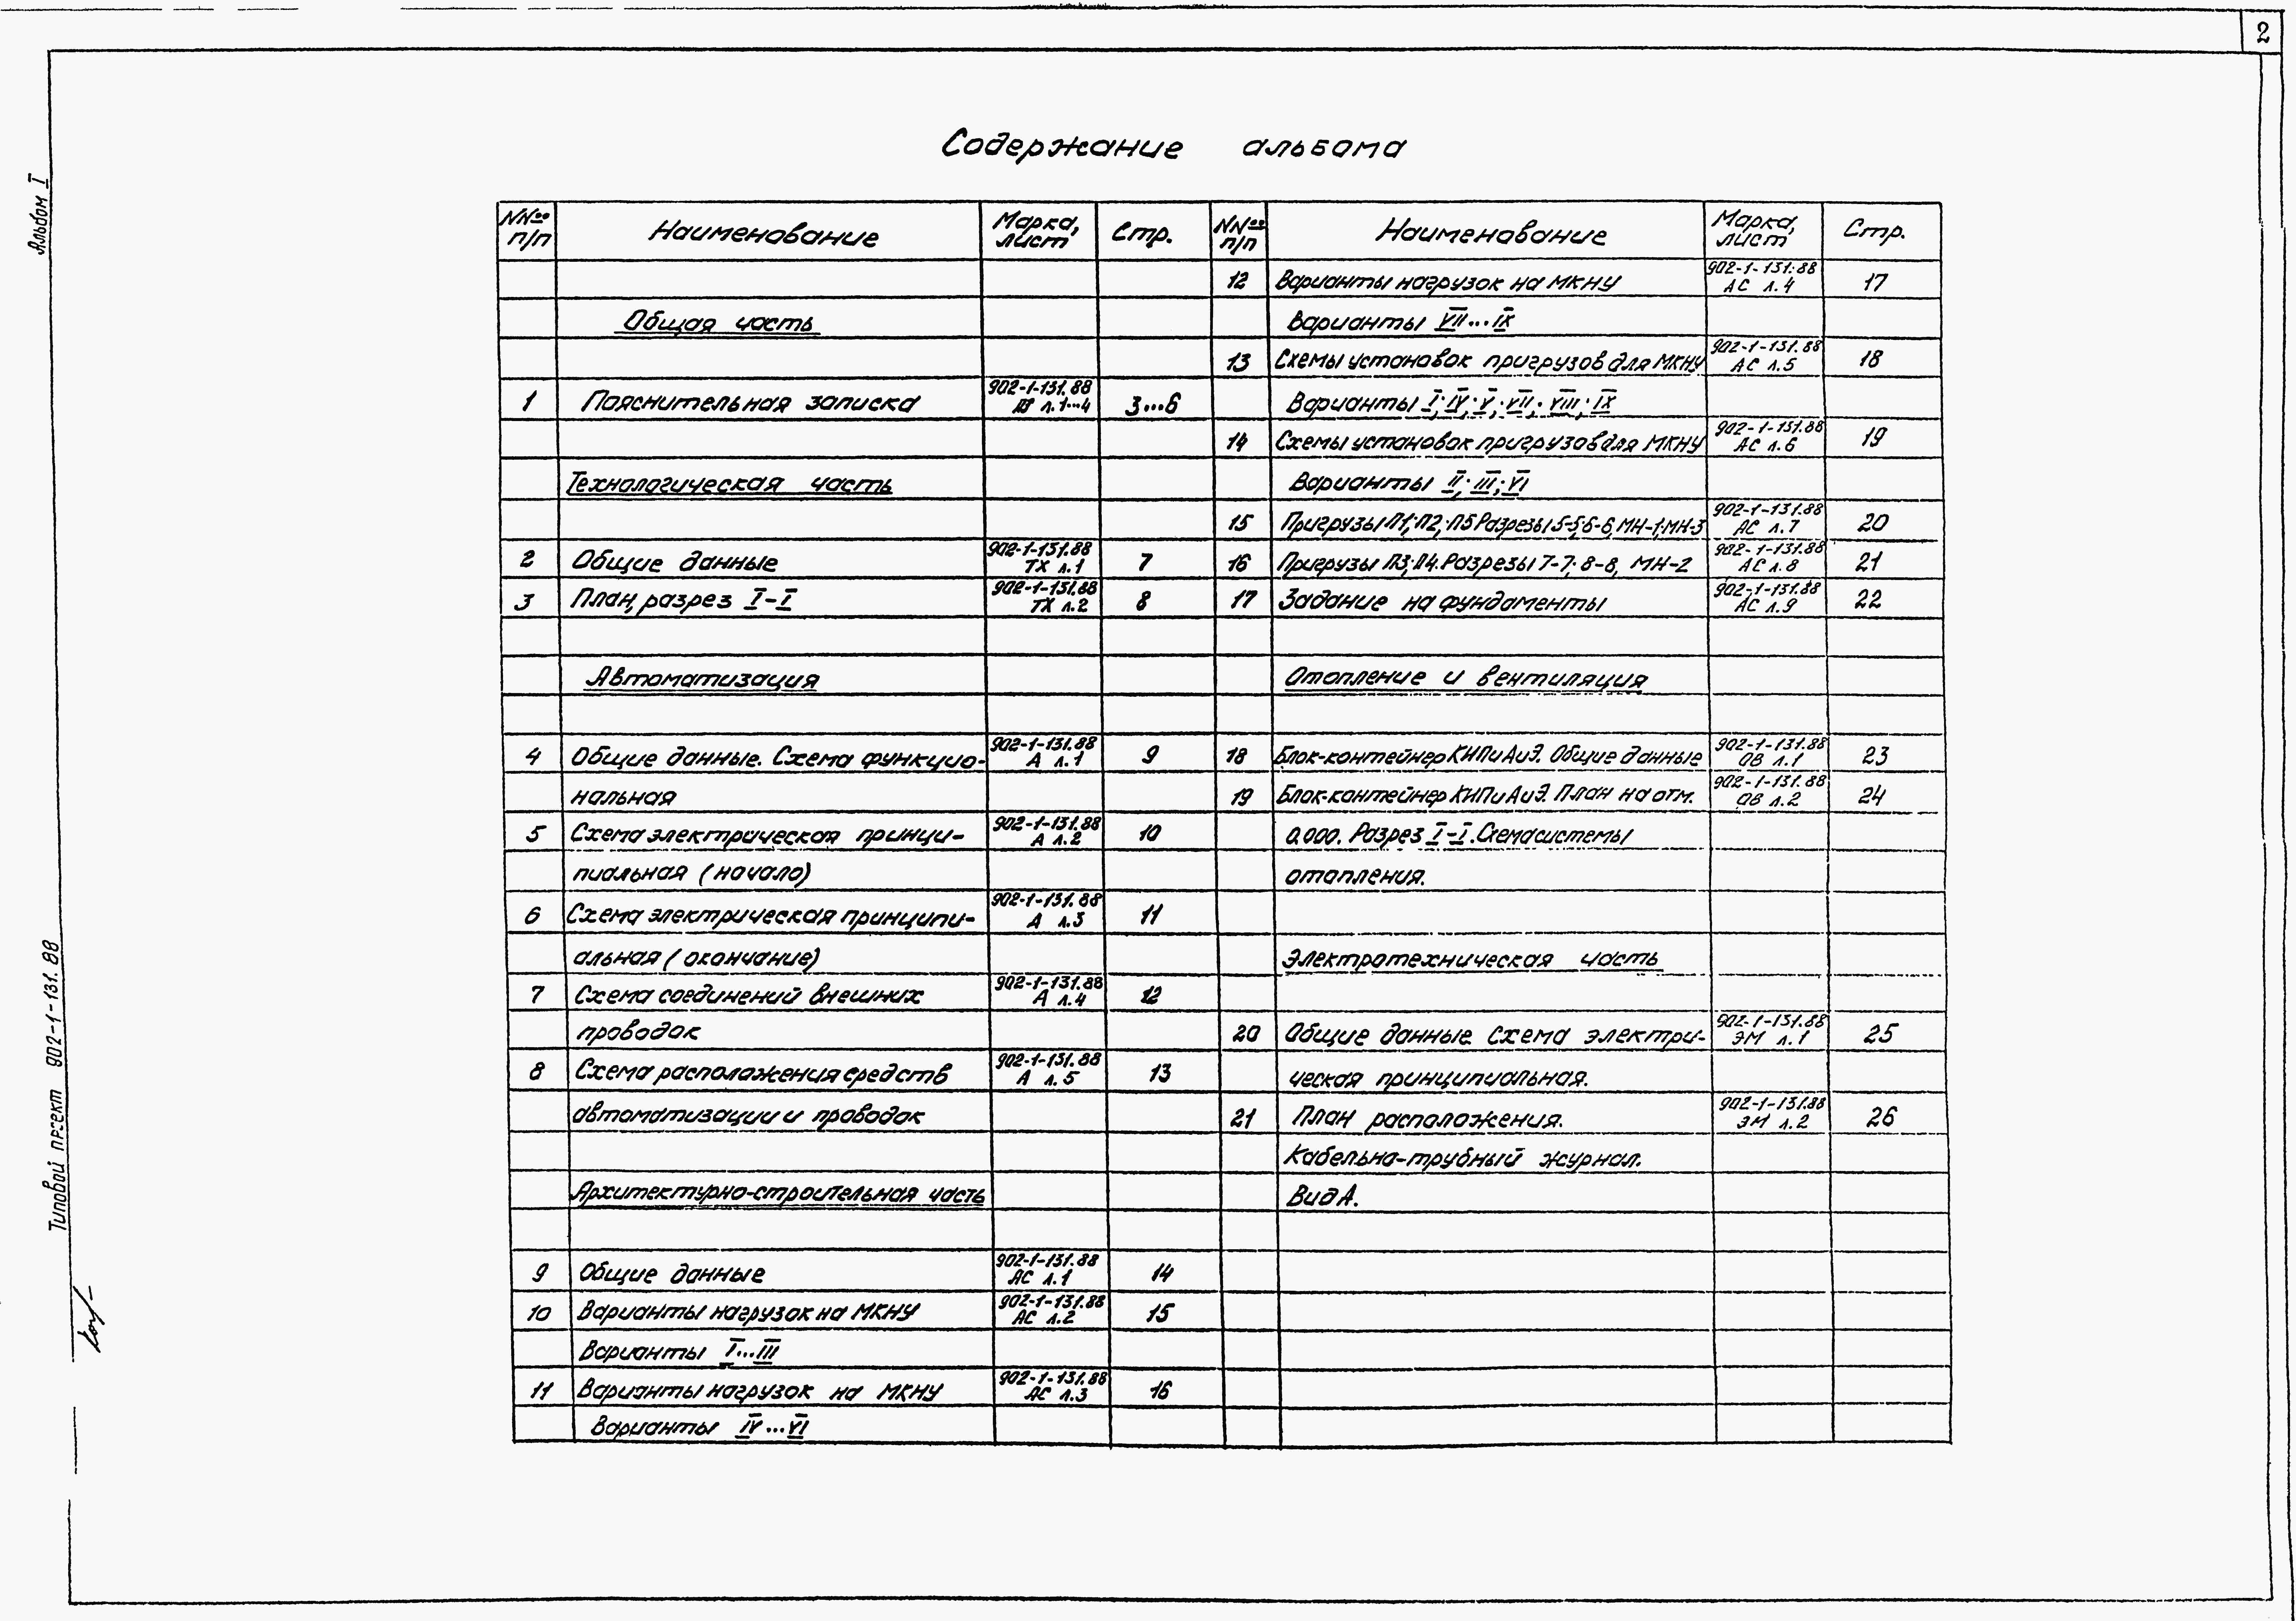 2
Альбом I
Типовой проект 902-1-131.88
Содержание альбома
NNоо п/п Наименование Марка, лист Стр.
Общая часть
1 Пояснительная записка 902-1-131.88 л.1...4 3...6
Технологическая часть
2 Общие данные 902-1-131.88 ТХ л.1 7
3 План, разрез I-I 902-1-131.88 ТХ л.2 8
Автоматизация
4 Общие данные. Схема функцио- 902-1-131.88 А л.1 9
нальная
5 Схема электрическая принци- 902-1-131.88 А л.2 10
пиальная (начало)
6 Схема электрическая принципи- 902-1-131.88 А л.3 11
альная (окончание)
7 Схема соединений внешних 902-1-131.88 А л.4 12
проводок
8 Схема расположения средств 902-1-131.88 А л.5 13
автоматизации и проводок
Архитектурно-строительная часть
9 Общие данные 902-1-131.88 АС л.1 14
10 Варианты нагрузок на МКНУ 902-1-131.88 АС л.2 15
Варианты I...III
11 Варианты нагрузок на МКНУ 902-1-131.88 АС л.3 16
Варианты IV...VI
NNоо п/п Наименование Марка, лист Стр.
12 Варианты нагрузок на МКНУ 902-1-131.88 АС л.4 17
Варианты VII...IX
13 Схемы установок пригрузов для МКНУ 902-1-131.88 АС л.5 18
Варианты I; IV; V; VII; VIII; IX
14 Схемы установок пригрузов для МКНУ 902-1-131.88 АС л.6 19
Варианты II; III; VI
15 Пригрузы П1; П2; П5 Разрезы 5-5; 6-6, МН-1; МН-3 902-1-131.88 АС л.7 20
16 Пригрузы П3; П4. Разрезы 7-7; 8-8, МН-2 902-1-131.88 АС л.8 21
17 Задание на фундаменты 902-1-131.88 АС л.9 22
Отопление и вентиляция
18 Блок-контейнер КИПиАиЭ. Общие данные 902-1-131.88 ОВ л.1 23
19 Блок-контейнер КИПиАиЭ. План на отм. 902-1-131.88 ОВ л.2 24
0.000. Разрез I-I. Схема системы
отопления.
Электротехническая часть
20 Общие данные. Схема электри- 902-1-131.88 ЭМ л.1 25
ческая принципиальная.
21 План расположения. 902-1-131.88 ЭМ л.2 26
Кабельно-трубный журнал.
Вид А.